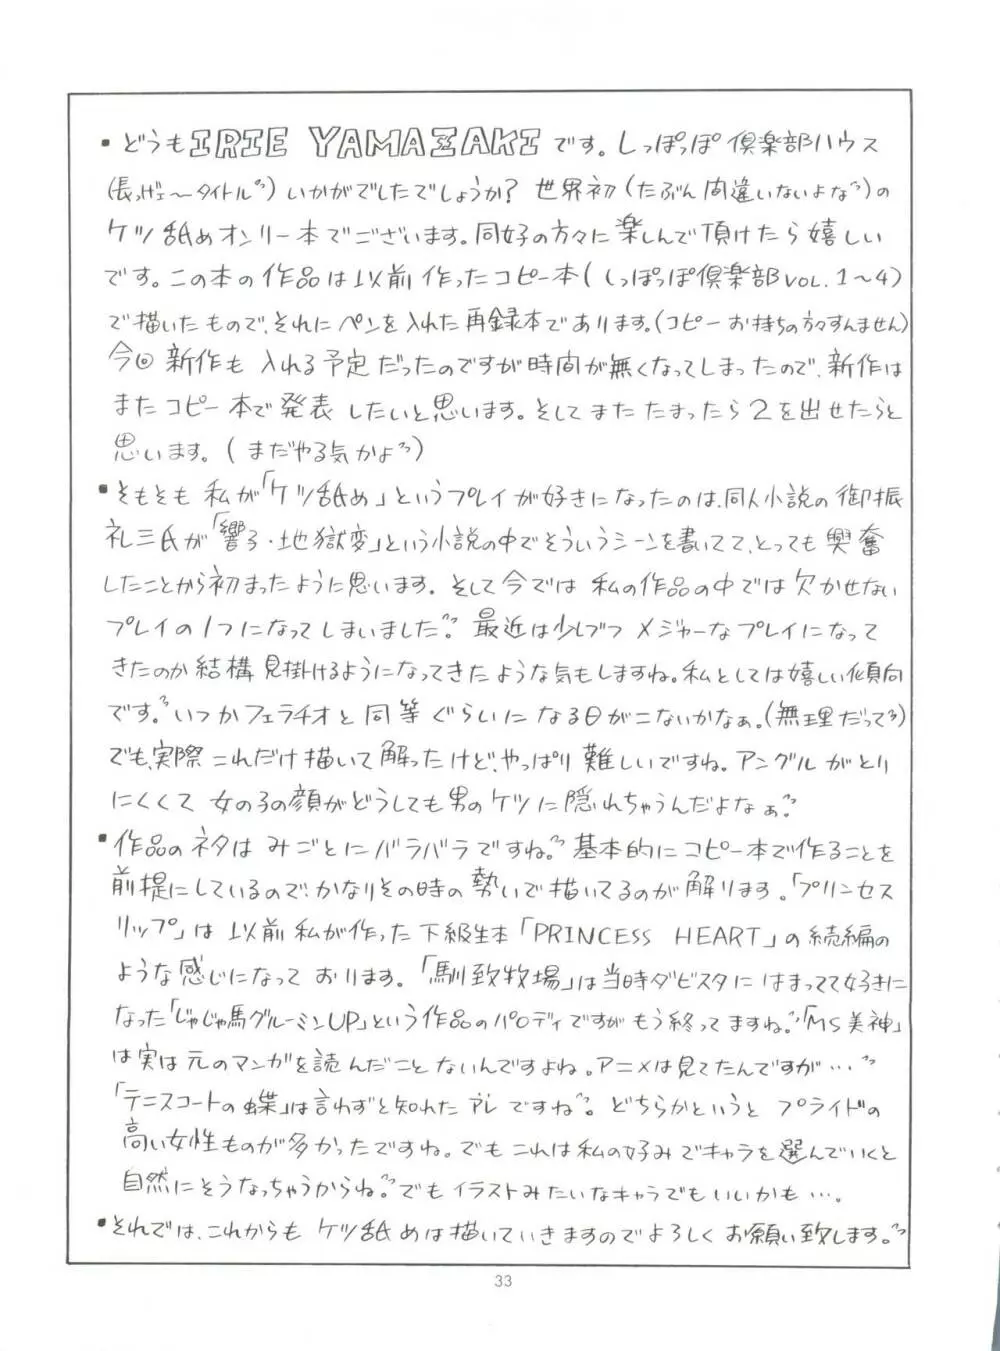 ・どうもIRIE YAMAZAKIです。しっぽっぽ倶楽部ハウス
(長っげェ〜タイトル〃)いかがでしたでしょうか？世界初(たぶん間違いないよな〃)の
ケツ舐めオンリー本でございます。同好の方々に楽しんで頂けたら嬉しい
です。この本の作品は以前作ったコピー本(しっぽっぽ倶楽部VOL.1〜4)
で描いたもので、それにペンを入れた再録本であります。(コピーお持ちの方々すんません)
今回新作も入れる予定だったのですが時間が無くなってしまったので、新作は
またコピー本で発表したいと思います。そしてまたたまったら2を出せたらと
思います。(まだやる気かよ〃)
・そもそも私が「ケツ舐め」というプレイが好きになったのは、同人小説の御振
礼三氏が「響子・地獄変」という小説の中でそういうシーンを書いてて、とっても興奮
したことから初まったように思います。そして今では私の作品の中では欠かせない
プレイの1つになってしまいました〃。最近は少しづつメジャーなプレイになって
きたのか結構見掛けるようになってきたような気もしますね。私としては嬉しい傾向
です。〃いつかフェラチオと同等ぐらいになる日がこないかなぁ。(無理だって〃)
でも、実際これだけ描いて解ったけど、やっぱり難しいですね。アングルがとり
にくくて女の子の顔がどうしても男のケツに隠れちゃうんだよなぁ〃
・作品のネタはみごとにバラバラですね。〃基本的にコピー本で作ることを
前提にしているので、かなりその時の勢いで描いてるのが解ります。「プリンセス
リップ」は以前私が作った下級生本「PRINCESS HEART」の続編の
ような感じになっております。「馴致牧場」は当時ダビスタにはまってて好きに
なった「じゃじゃ馬グルーミンUP」という作品のパロディですがもう終ってますね。〃「MS美神」
は実は元のマンガを読んだことないんですよね。アニメは見てたんですが…〃
「テニスコートの蝶」は言わずと知れたアレですね〃。どちらかというとプライドの
高い女性ものが多かったですね。でもこれは私の好みでキャラを選んでいくと
自然にそうなっちゃうからね。〃でもイラストみたいなキャラでもいいかも…。
・それでは、これからもケツ舐めは描いていきますのでよろしくお願い致します。〃
33